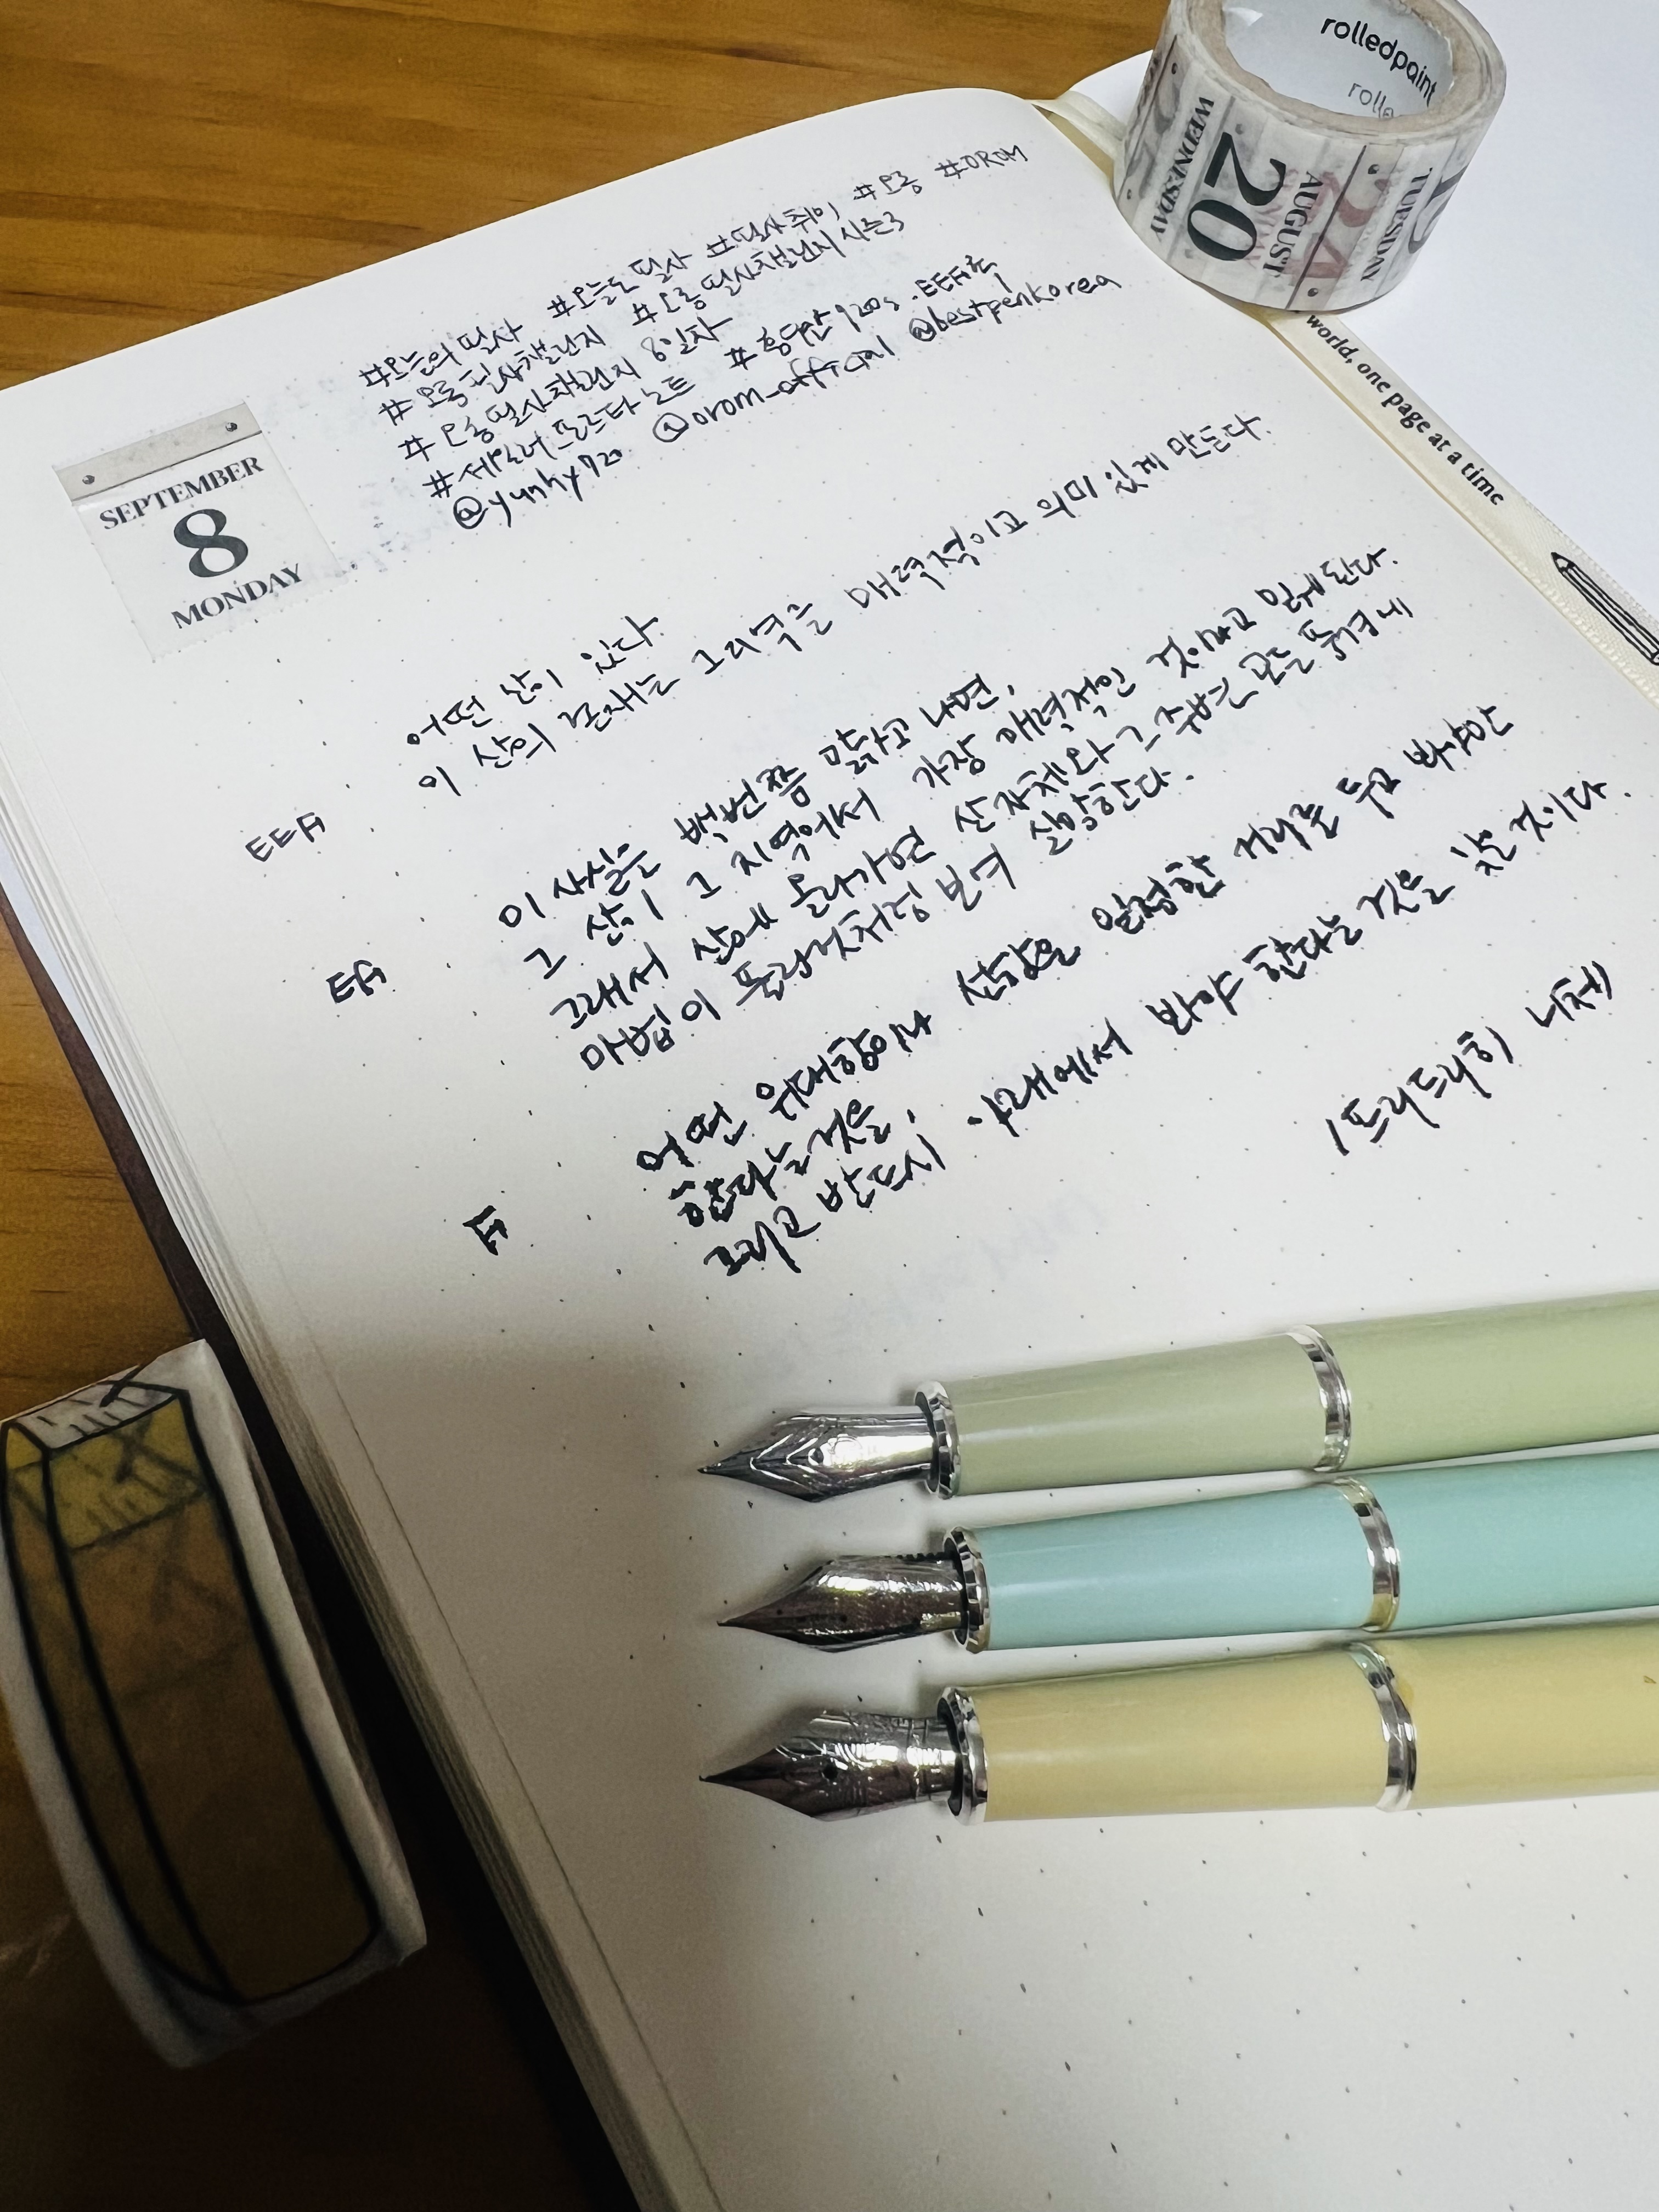 rolledpaint
rolle
TUESDAY
20
AUGUST
WEDNESDAY
world, one page at a time
#오늘의필사 #오늘도필사 #필사취미 #오롬 #OROM
#오롬필사챌린지 #오롬필사챌린지시즌3
#오롬필사챌린지 8일차
#세일러프로타노트 #홍디안920s.EEF촉
@yunhy920 @orom_official @bestpenkorea
SEPTEMBER
8
MONDAY
어떤 산이 있다.
이 산의 존재는 그 지역을 매력적이고 의미 있게 만든다.
EEF
이 사실을 백번쯤 말하고 나면,
그 산이 그 지역에서 가장 매력적인 것이라고 믿게된다.
그래서 산에 올라가면 산 자체와 그 주변은 모든 풍경에
마법이 풀린것처럼 보여 실망한다.
EF
어떤 위대함이나 선함을 일정한 거리를 두고 봐야만
한다는 것을,
그리고 반드시 아래에서 봐야 한다는 것을 잊은 것이다.
F
/프리드리히 니체)